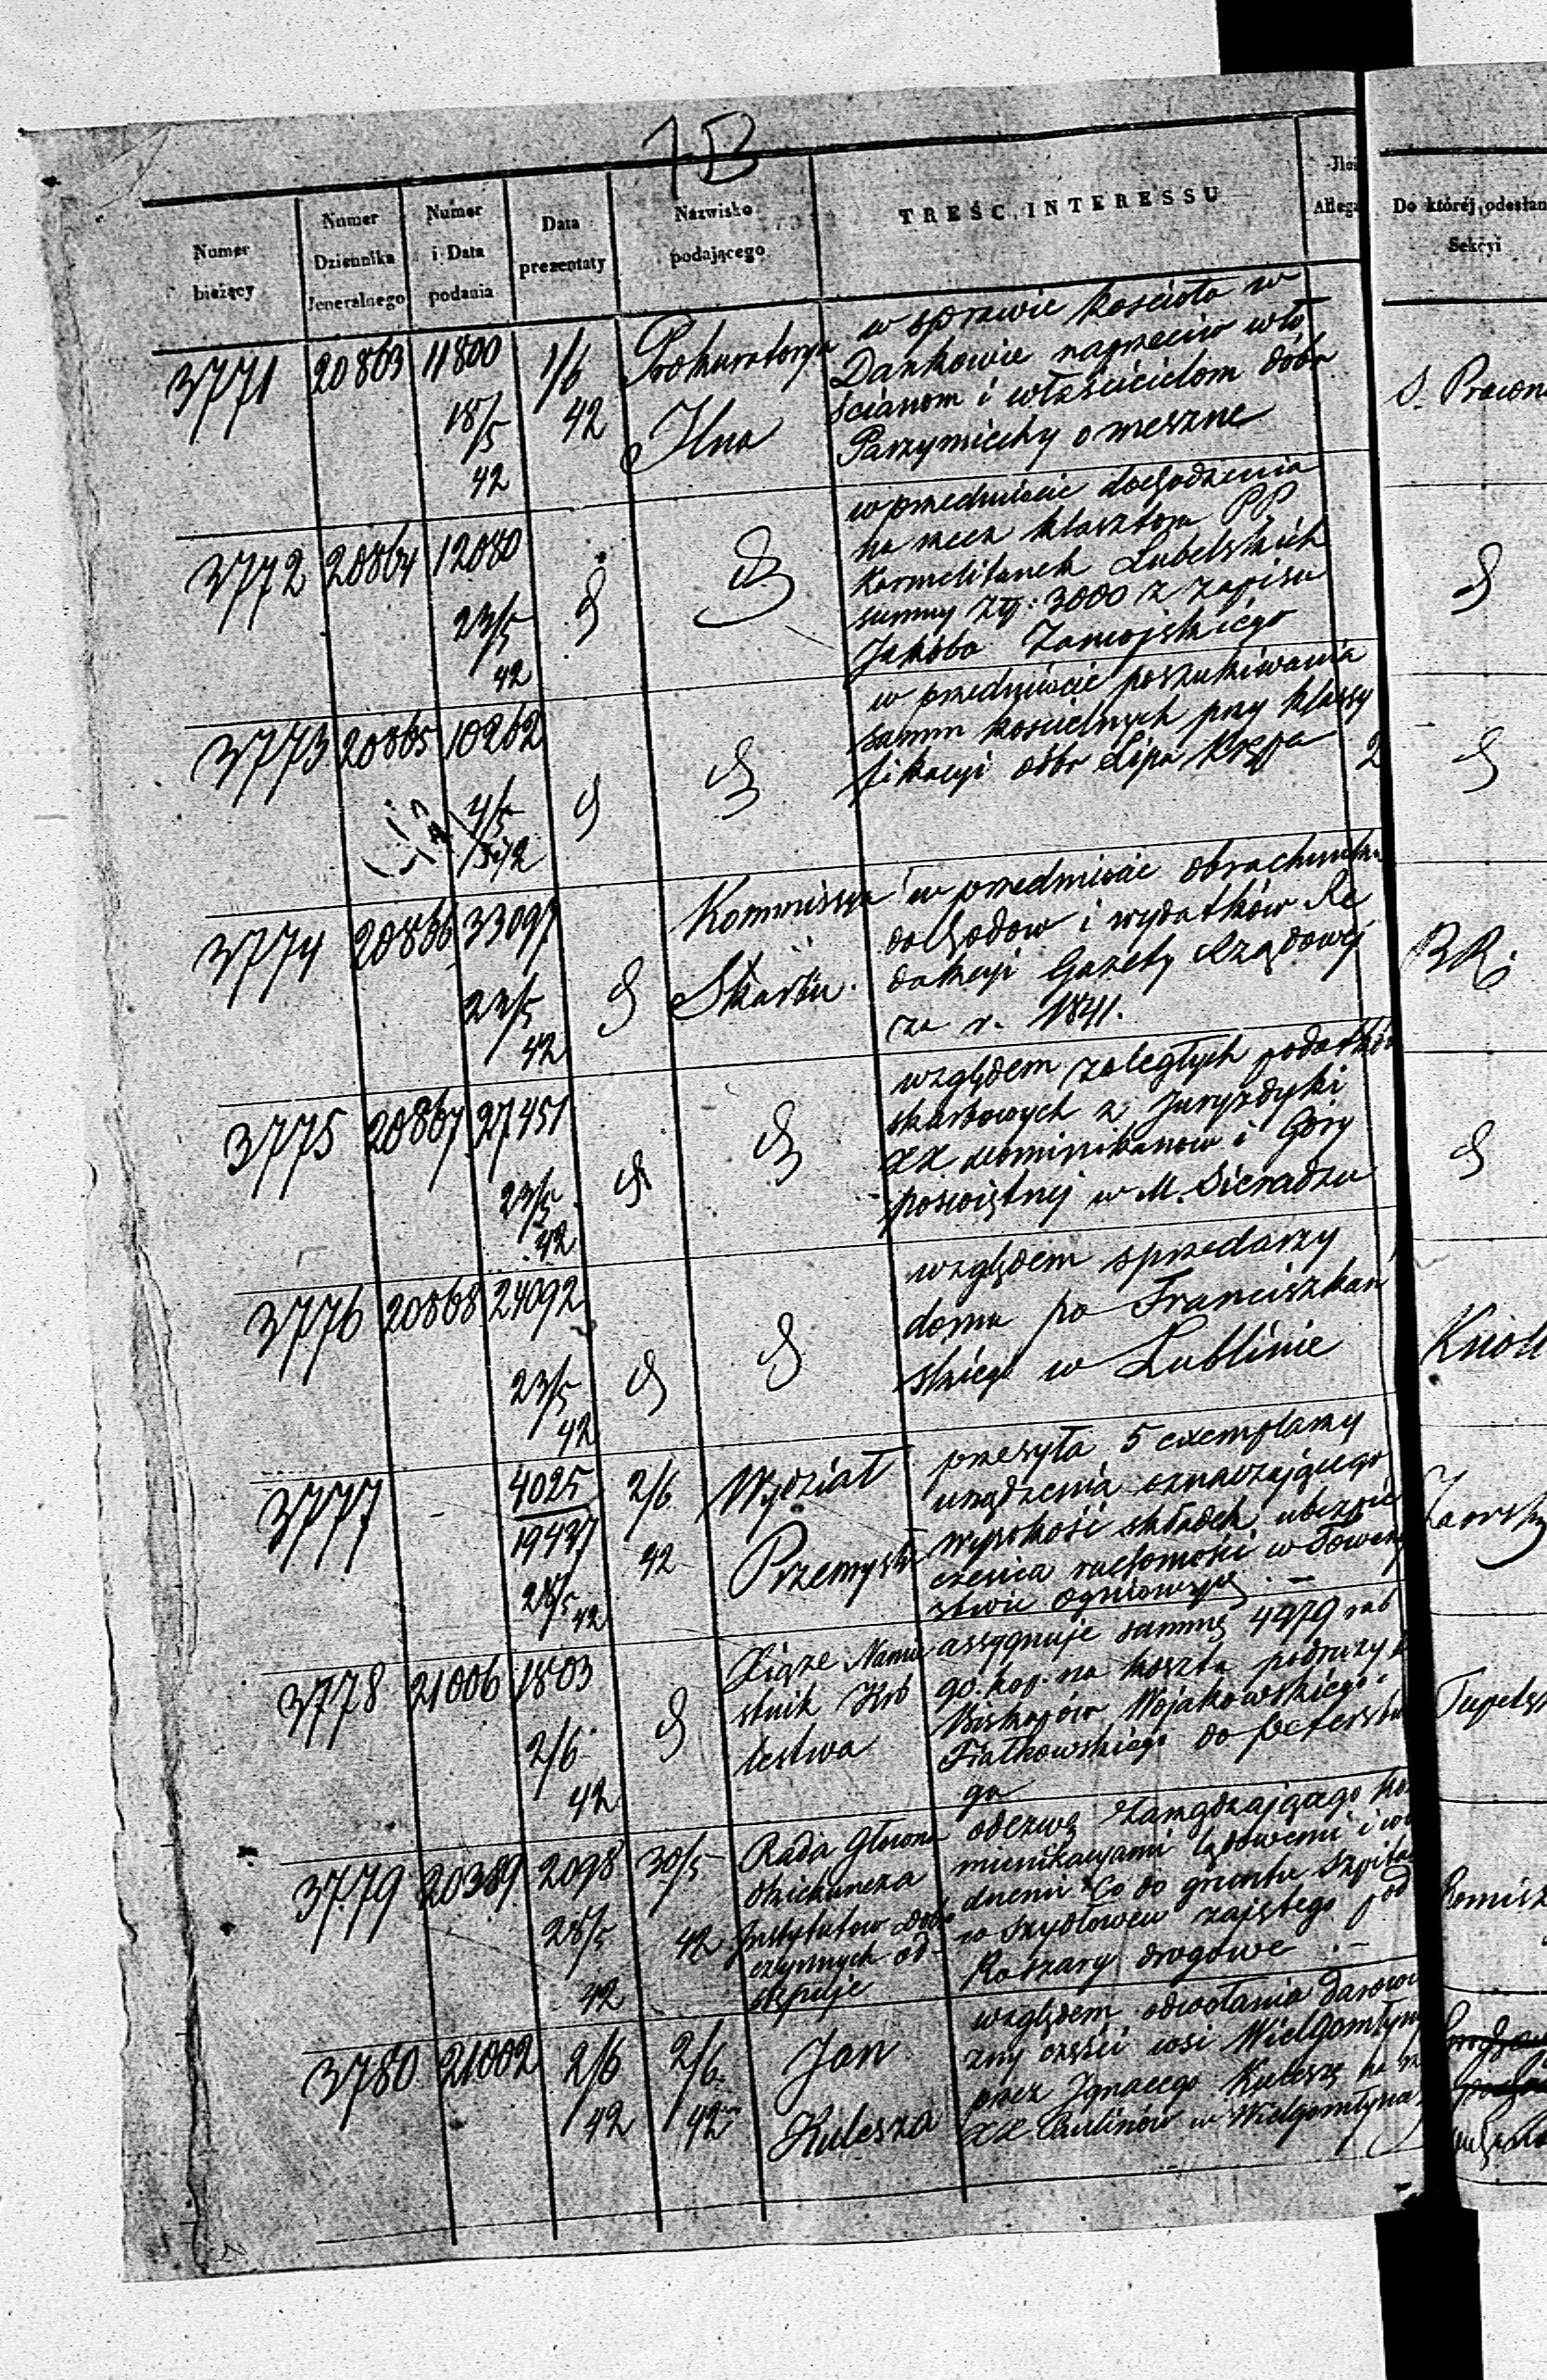 1B
Numer bieżący
Numer Dziennika Jeneralnego
Numer i Data podania
Data prezentaty
Nazwisko podającego
TREŚĆ INTERESSU
Do której odesłan
Sekcyi
3771 20863 11800 18/5 42 1/6 42
Prokuratorya
w sprawie kościoła w
Dankowie naprzeciw wło
ścianom i właścicielom dóbr
Parzymiechy o meszne
3772 20864 12080 23/5 42
w przedmiocie dochodzenia
na rzecz klasztoru PP
Karmelitanek Lubelskich
summy Złp: 3000 z zapisu
Jakóba Zamojskiego
3773 20865 10262 4/5 42
w przedmiocie poszukiwania
summ kościelnych przy klassy
fikacyi dóbr Lipa Krępa
2
3774 20866 33097 23/5 42
Kommissya
Skarbu
w przedmiocie obrachunku
dochodow i wydatków Re
dakcyi Gazety Rządowej
za r. 1841.
RR.
3775 20867 27451 23/5 42
względem zaległych podatków
skarbowych z Juryzdyki
XX Dominikanow i Góry
poświętnej w M. Sieradzu
3776 20868 24092 23/5 42
względem sprzedarzy
domu po Franciszkań
skiego w Lublinie
3777 - 4025/19427 28/5 42 2/6 42
Wydział
Przemysłu
przesyła 5 exemplarzy
urządzenia oznaczającego
wysokość składek ubezpie
czenia ruchomości w Towarzy
stwie ogniowym . —
3778 21006 1803 2/6 42
Xiąże Namie
stnik Kró
lestwa
assygnuje summę 4979 rub
90. kop. na koszta podruży
Biskupów Wojakowskiego
Fiałkowskiego do Petersbu
ga
3779 20389 2098 28/5 42 30/5 42
Rada Głowna
Opiekuncza
Instytutow Dobr
czynnych od-
stępuje
odezwę Zarządzającego Kom
mienikacyami lądowemi i wo
dnemi Co do gruntu Szpital
w Szydłowcu zajętego pod
Koszary drogowe . —
3780 21002 2/6 42 2/6 42
Jan
Kulesza
względem odwołania darowi
zny części wsi Wielgomłyny
przez Ignacego Kuleszę na rz
XX Paulinów w Wielgomłynach